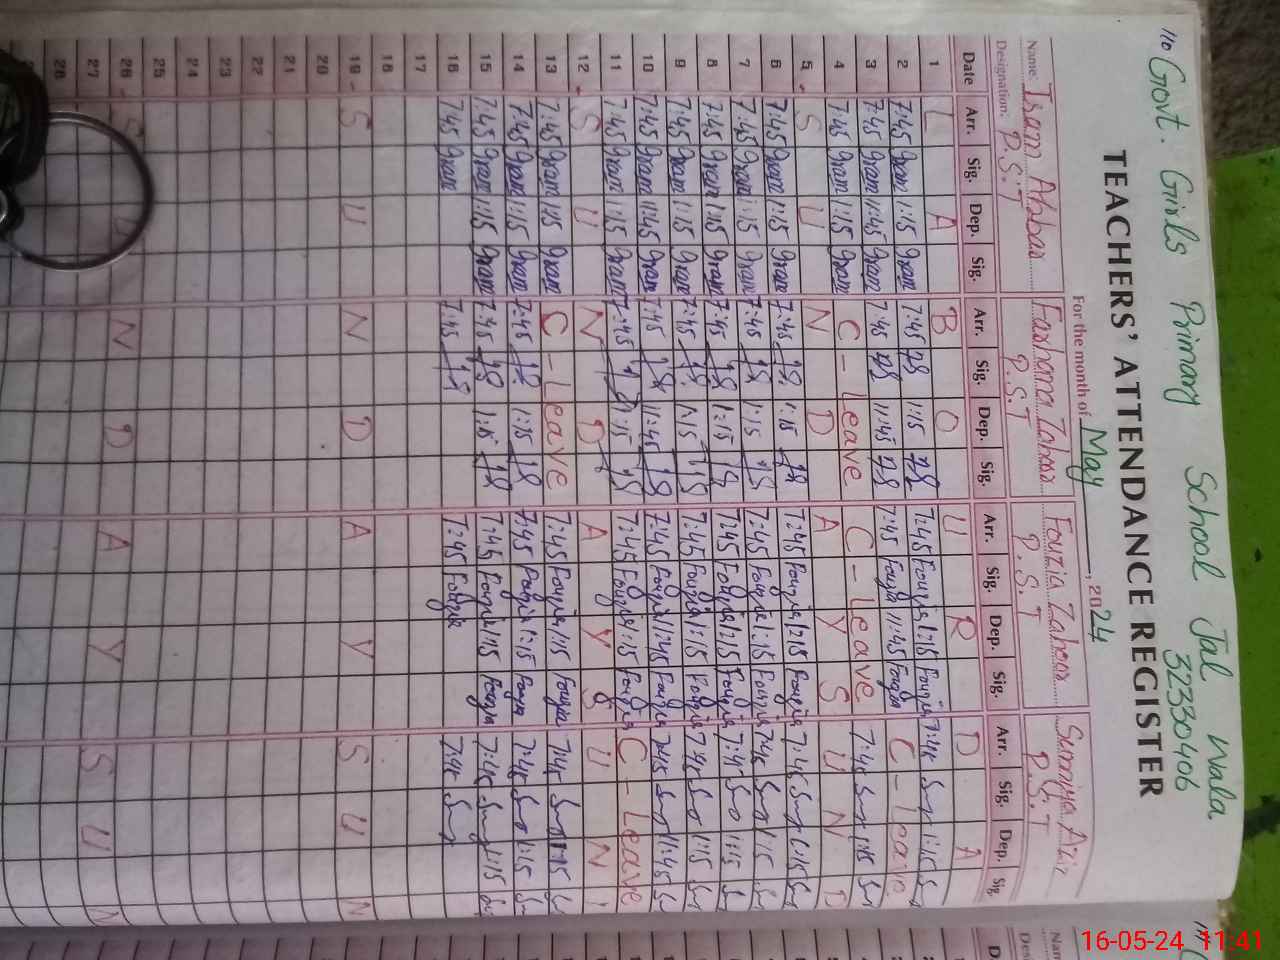 Govt. Girls Primary School Jal Wala
32330406
TEACHERS' ATTENDANCE REGISTER
For the month of May, 2024
Name: Iram Abbas Farhana Zahoor Fouzia Zahoor Sumaya Aziz
Designation: P.S.T P.S.T P.S.T P.S.T
Date Arr. Sig. Dep. Sig. Arr. Sig. Dep. Sig. Arr. Sig. Dep. Sig. Arr. Sig. Dep. Sig.
1 L A B O U R D A
2 7:45 Iram 1:15 Iram 7:45 1:15 7:45 Fouzia 1:15 Fouzia 7:45 1:15
3 7:45 Iram 11:45 Iram 7:45 11:45 7:45 Fouzia 11:45 Fouzia C-Leave
4 7:45 Iram 1:15 Iram C-Leave C-Leave 7:45 1:15
5 S U N D A Y S U N D
6 7:45 Iram 1:15 Iram 7:45 1:15 7:45 Fouzia 1:15 Fouzia 7:45 1:15
7 7:45 Iram 1:15 Iram 7:45 1:15 7:45 Fouzia 1:15 Fouzia 7:45 1:15
8 7:45 Iram 1:15 Iram 7:45 1:15 7:45 Fouzia 1:15 Fouzia 7:45 1:15
9 7:45 Iram 1:15 Iram 7:45 1:15 7:45 Fouzia 1:15 Fouzia 7:45 1:15
10 7:45 Iram 11:45 Iram 7:45 11:45 7:45 Fouzia 11:45 Fouzia 7:45 11:45
11 7:45 Iram 1:15 Iram 7:45 1:15 7:45 Fouzia 1:15 Fouzia C-Leave
12 S U N D A Y S U N
13 7:45 Iram 1:15 Iram C-Leave 7:45 Fouzia 1:15 Fouzia 7:45 1:15
14 7:45 Iram 1:15 Iram 7:45 1:15 7:45 Fouzia 1:15 Fouzia 7:45 1:15
15 7:45 Iram 1:15 Iram 7:45 1:15 7:45 Fouzia 1:15 Fouzia 7:45 1:15
16 7:45 Iram 7:45 7:45 Fouzia 7:45
17
18
19 S U N D A Y S U N
20
21
22
23
24
25
26 S U N D A Y S U N
27
28
16-05-24 11:41